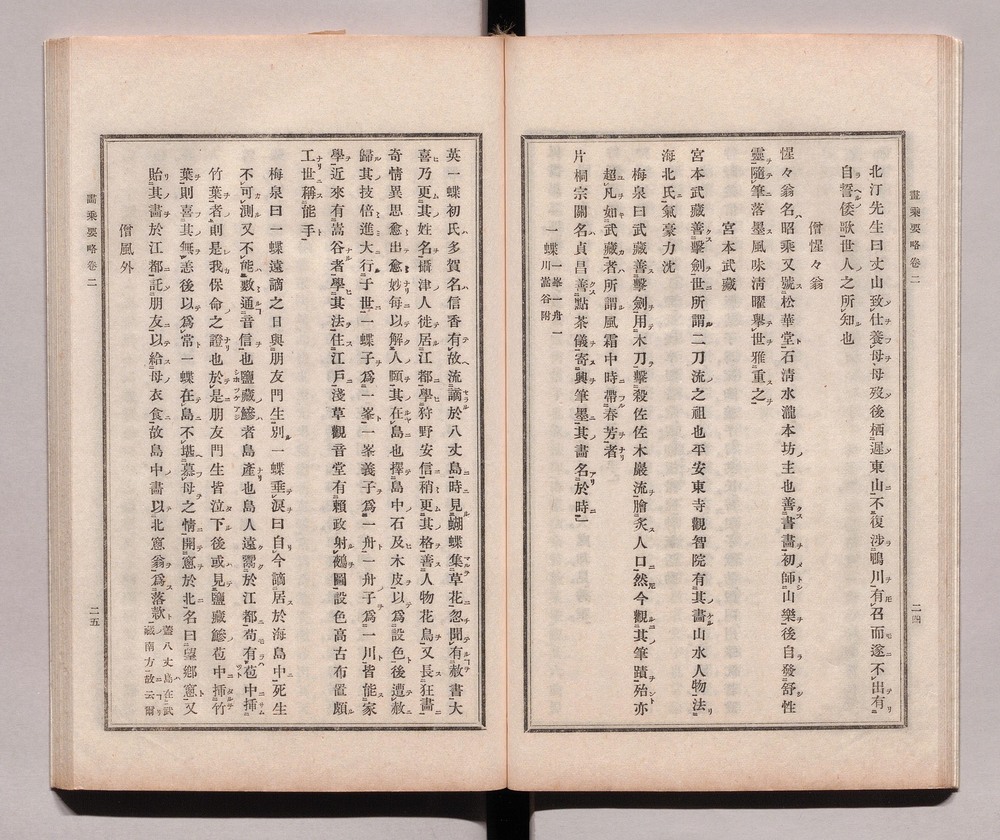 畫乘要略卷二
二四
北汀先生曰丈山致仕養母母歿後栖遲東山不復涉鴨川有召而遂不出有
自誓倭歌世人之所知也
僧惺々翁
惺々翁名昭乘又號松華堂石清水瀧本坊主也善書畫初師山樂後自發舒性
靈隨筆落墨風味清曜舉世雅重之
宮本武藏
宮本武藏善擊劍世所謂二刀流之祖也平安東寺觀智院有其畫山水人物法
海北氏氣豪力沈
梅泉曰武藏善擊劍用木刀擊殺佐佐木巖流膾炙人口然今觀其筆蹟殆亦
超凡如武藏者所謂風霜中時帶春芳者
片桐宗關名貞昌善點茶儀寄興筆墨其畫名於時
一蝶一峯一舟一川嵩谷附
英一蝶初氏多賀名信香有故流謫於八丈島時見蝴蝶集草花忽聞有赦書大
喜乃更其姓名攝津人徙居江都學狩野安信稍更其格善人物花鳥又長狂畫
奇情異思愈出愈妙每以解人頤其在島也擇島中石及木皮以爲設色後遭赦
歸其技倍進大行于世一蝶子爲一峯一峯義子爲一舟一舟子爲一川皆能家
學近來有嵩谷者學其法住江戶淺草觀音堂有賴政射鵺圖設色高古布置頗
工世稱能手
梅泉曰一蝶遠謫之日與朋友門生別一蝶垂淚曰自今謫居於海島中死生
不可測又不能數通音信也鹽藏鰺者島產也島人遠鬻於江都苟有苞中挿
竹葉者則是我保命之證也於是朋友門生皆泣下後或見鹽藏鰺苞中挿竹
葉則喜其無恙後以爲常一蝶在島不堪慕母之情開窻於北名曰望鄉窻又
貽其畫於江都託朋友以給母衣食故島中畫以北窻翁爲落款蓋八丈島在武藏南方故云爾
僧風外
畫乘要略卷二
二五